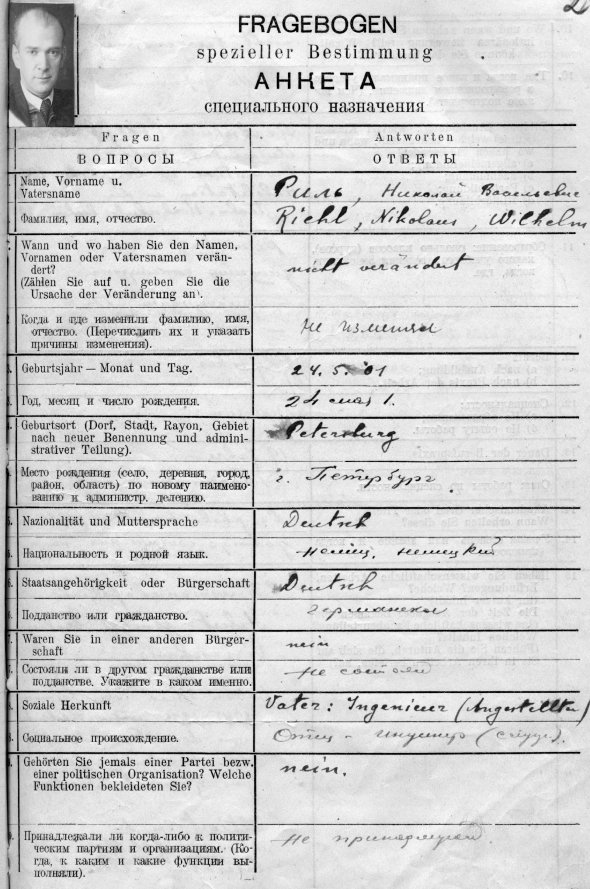 FRAGEBOGEN
spezieller Bestimmung
АНКЕТА
специального назначения
Fragen
Antworten
ВОПРОСЫ
ОТВЕТЫ
Name, Vorname u.
Vatersname
Риль, Николай Васильевич
Фамилия, имя, отчество.
Riehl, Nikolaus, Wilhelm
Wann und wo haben Sie den Namen,
Vornamen oder Vatersnamen verän-
dert?
(Zählen Sie auf u. geben Sie die
Ursache der Veränderung an).
nicht verändert
2. Когда и где изменили фамилию, имя,
отчество. (Перечислить их и указать
причины изменения).
не изменял
3. Geburtsjahr — Monat und Tag.
24. 5. 01
3. Год, месяц и число рождения.
24 мая 1.
4. Geburtsort (Dorf, Stadt, Rayon, Gebiet
nach neuer Benennung und admini-
strativer Teilung).
Petersburg
4. Место рождения (село, деревня, город,
район, область) по новому наимено-
ванию и администр. делению.
г. Петербург.
5. Nazionalität und Muttersprache
Deutsch
5. Национальность и родной язык.
немец, немецкий
6. Staatsangehörigkeit oder Bürgerschaft
Deutsch
6. Подданство или гражданство.
германское
7. Waren Sie in einer anderen Bürger-
schaft
nein
7. Состояли ли в другом гражданстве или
подданстве. Укажите в каком именно.
не состоял
8. Soziale Herkunft
Vater: Ingenieur (Angestellter)
8. Социальное происхождение.
Отец - инженер
9. Gehörten Sie jemals einer Partei bezw.
einer politischen Organisation? Welche
Funktionen bekleideten Sie?
nein.
9. Принадлежали ли когда-либо к полити-
ческим партиям и организациям. (Ко-
гда, к каким и какие функции вы-
полняли).
не принадлежал